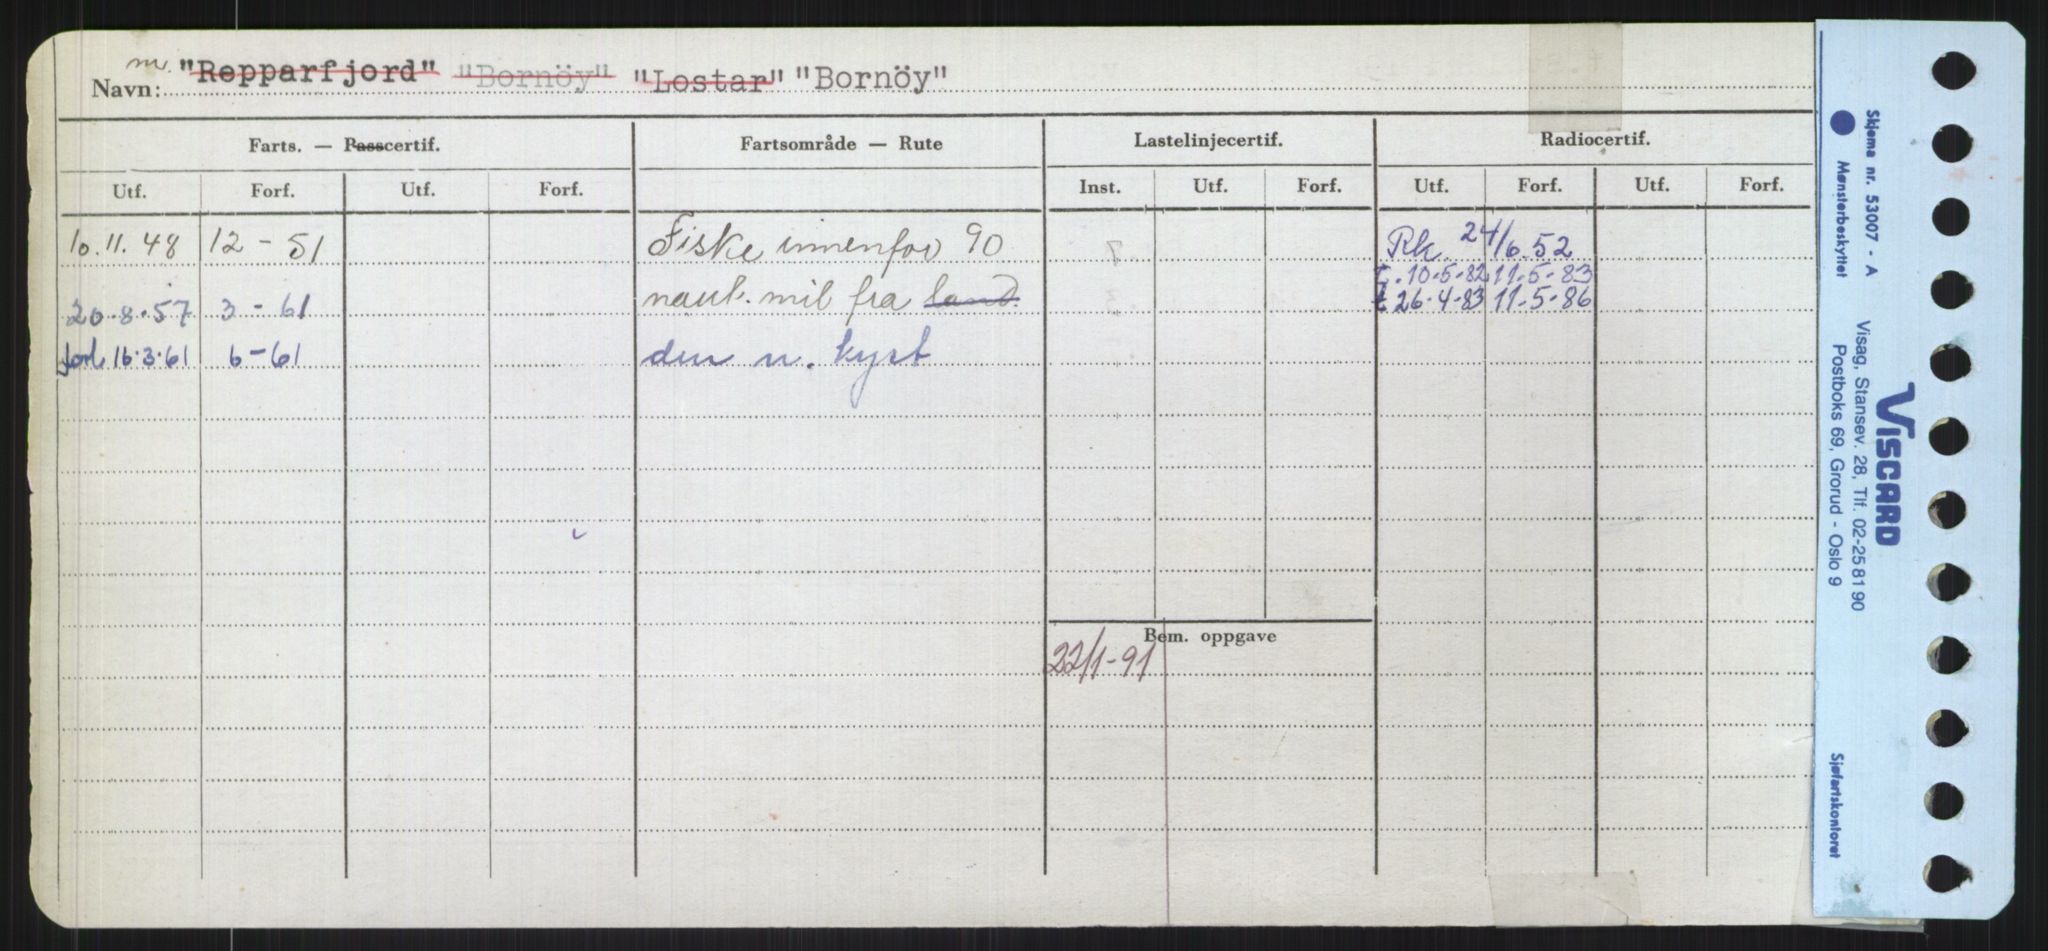 m. "Repparfjord" "Bornöy" "Lostar" "Bornöy"
Navn:
Farts. — Passcertif. Fartsområde — Rute Lastelinjecertif. Radiocertif.
Utf. Forf. Utf. Forf. Inst. Utf. Forf. Utf. Forf. Utf. Forf.
10.11.48 12-51 Fiske innenfor 90 Rk 24/6.52
10-5-82 11-5-83
20.8.57 3-61 naut. mil fra land. 26.4.83 11.5-86
forl 16.3.61 6-61 den n. kyst
Bem. oppgave
22/1-91
Skjema nr. 53007 - A
Mønsterbeskyttet
VISCARD
Visag, Stansev. 28, Tlf. 02-25 81 90
Postboks 69, Grorud - Oslo 9
Sjøfartskontoret